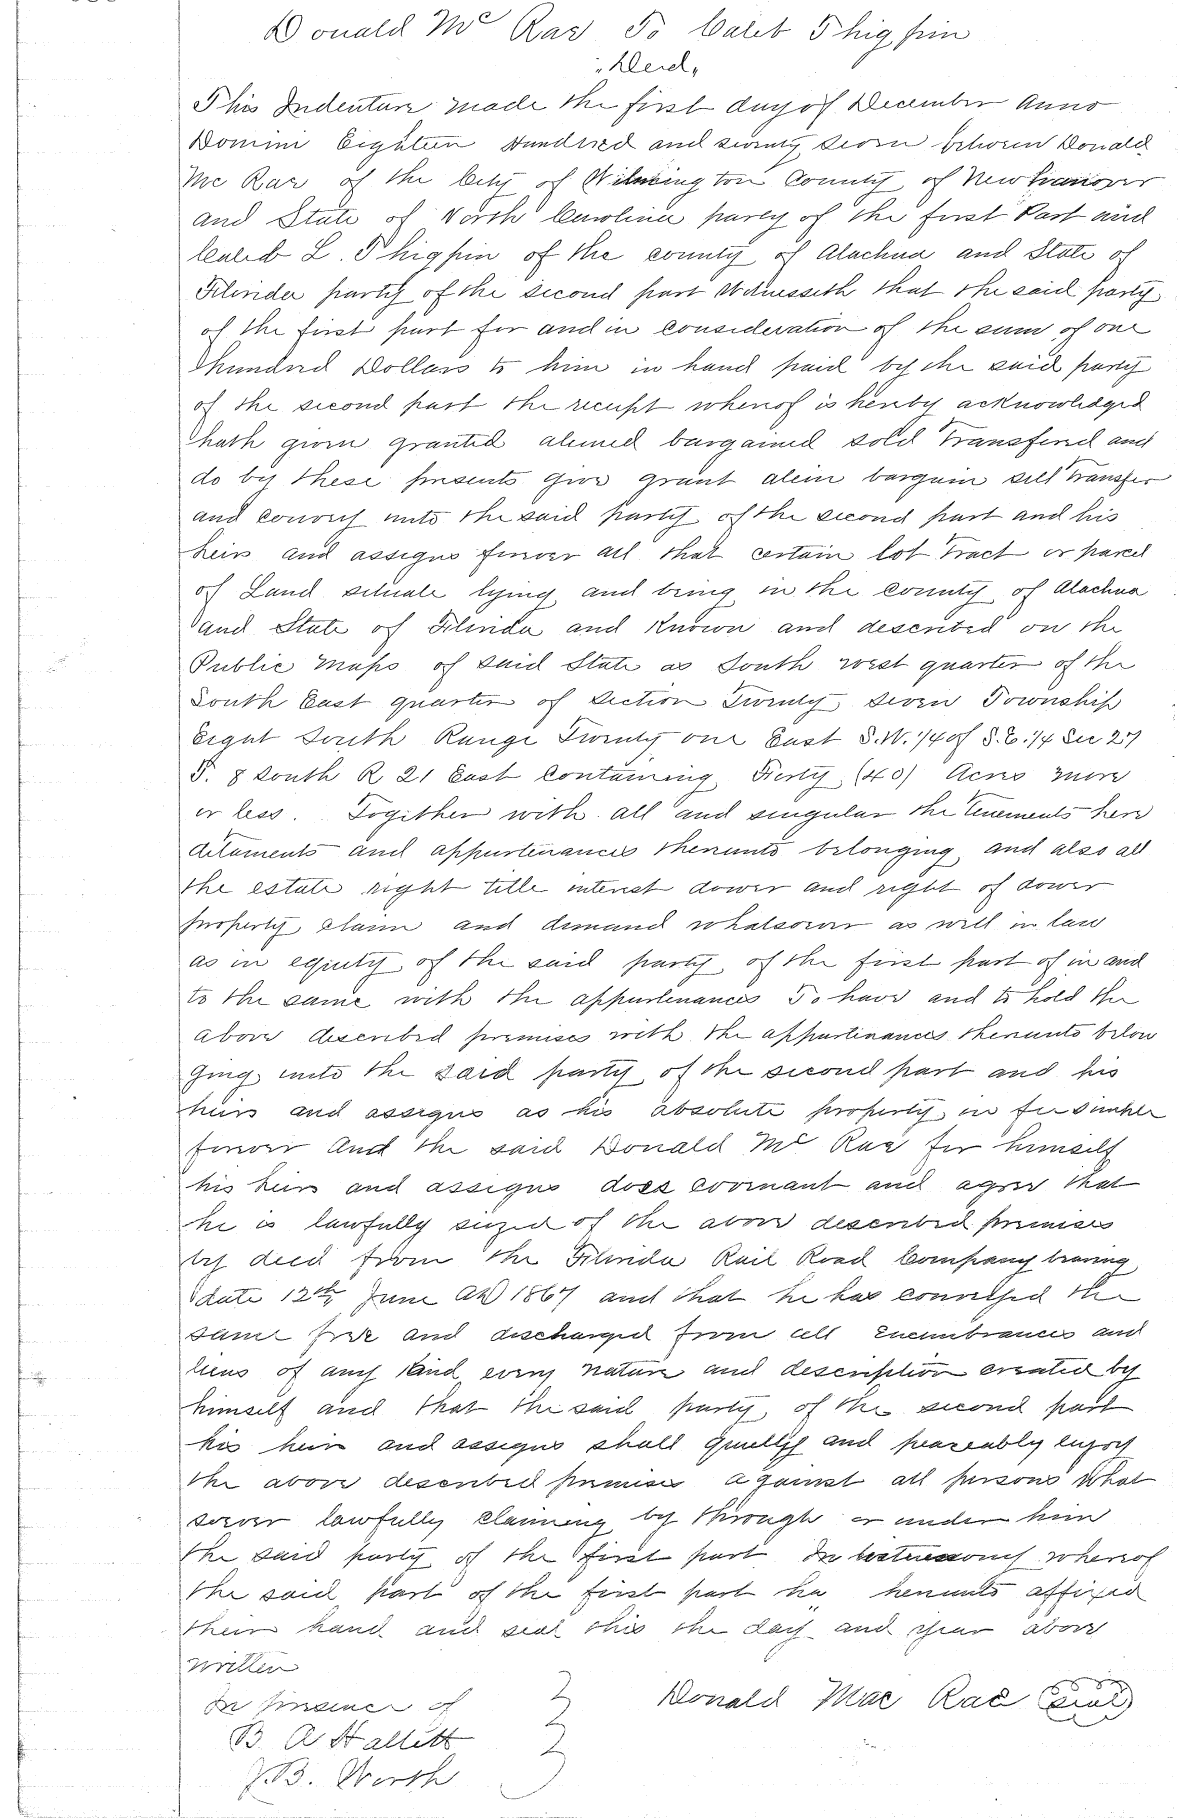 Donald Mc Rae To Caleb Phigpin
"Deed"
This Indenture made the first day of December Anno
Domini Eighteen Hundred and seventy seven between Donald
Mc Rae of the City of Wilmington County of New Hanover
and State of North Carolina party of the first Part and
Caleb L. Phigpin of the county of Alachua and State of
Florida party of the second part Witnesseth that the said party
of the first part for and in consideration of the sum of one
hundred Dollars to him in hand paid by the said party
of the second part the receipt whereof is hereby acknowledged
hath given granted aliened bargained sold Transfered and
do by these presents give grant alein bargain sell Transfer
and convey unto the said party of the second part and his
heirs and assigns forever all that certain lot tract or parcel
of Land situate lying and being in the County of Alachua
and State of Florida and Known and described on the
Public Maps of said State as South west quarter of the
South East quarter of Section Twenty Seven Township
Eight South Range Twenty one East S.W. 1/4 of S.E. 1/4 Sec 27
T. 8 South R 21 East Containing Forty (40) Acres more
or less. Together with all and singular the tenements here
ditaments and appurtenances thereunto belonging and also all
the estate right title interest dower and right of dower
property claim and demand whatsoever as well in law
as in equity of the said party of the first part of in and
to the same with the appurtenances To have and to hold the
above described premises with the appurtinances thereunto belon
ging unto the said party of the second part and his
heirs and assigns as his absolute property in fee simple
forever And the said Donald Mc Rae for himself
his heirs and assigns does covenant and agree that
he is lawfully seized of the above described premises
by deed from the Florida Rail Road Company bearing
date 12th June AD 1867 and that he has conveyed the
same free and discharged from all Encumbrances and
liens of any Kind every nature and description created by
himself and that the said party of the second part
his heirs and assigns shall quietly and peaceably enjoy
the above described premises against all persons what
soever lawfully claiming by through or under him
the said party of the first part In whereof
the said part of the first part ha hereunto affixed
their hand and seal this the day and year above
written
In presence of
Donald Mac Rae (seal)
B. A Hallett
J. B. Worth